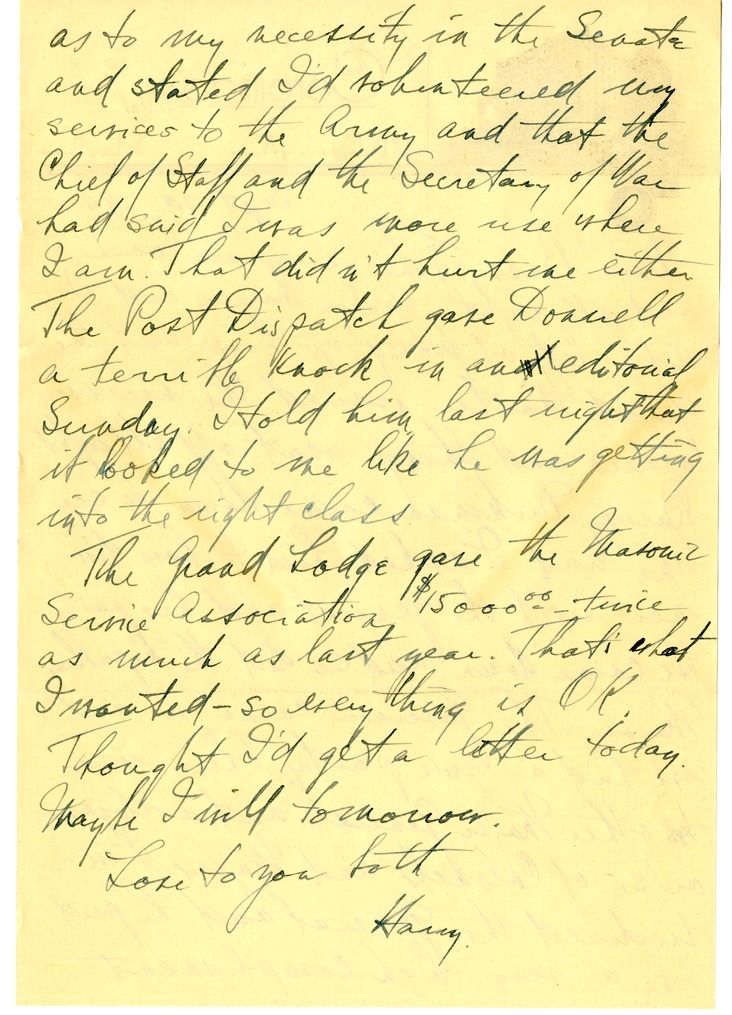 as to my necessity in the Senate
and stated I'd volunteered my
services to the Army and that the
Chief of Staff and the Secretary of War
had said I was more use where
I am. That didn't hurt me either
The Post Dispatch gave Donnell
a terrible knock in an editorial
Sunday. I told him last night that
it looked to me like he was getting
into the right class.
The Grand Lodge gave the Masonic
Service Association $15000.00 - twice
as much as last year. That's what
I wanted - so everything is OK.
Thought I'd get a letter today.
Maybe I will tomorrow.
Love to you both
Harry.